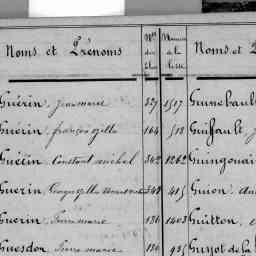 Noms et Prénoms Nos des Noms et
Guérin, jean marie 327 1517 Guinebault
Guérin, françois gille 164 518 Guiffault,
Guérin, Constant michel 362 1262 Guingouain
Guérin, 348 415 Guion,
Guérin, Pierre marie 136 1403 Guitton,
Guesdon, Pierre marie 136 955 Guizot de la